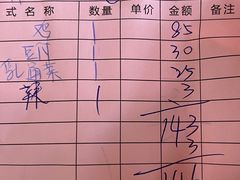 式名称 数量 单价 金额 备注
鸡 1 85
1 30
乳通菜 1 25
辣 1 3
143
3
146